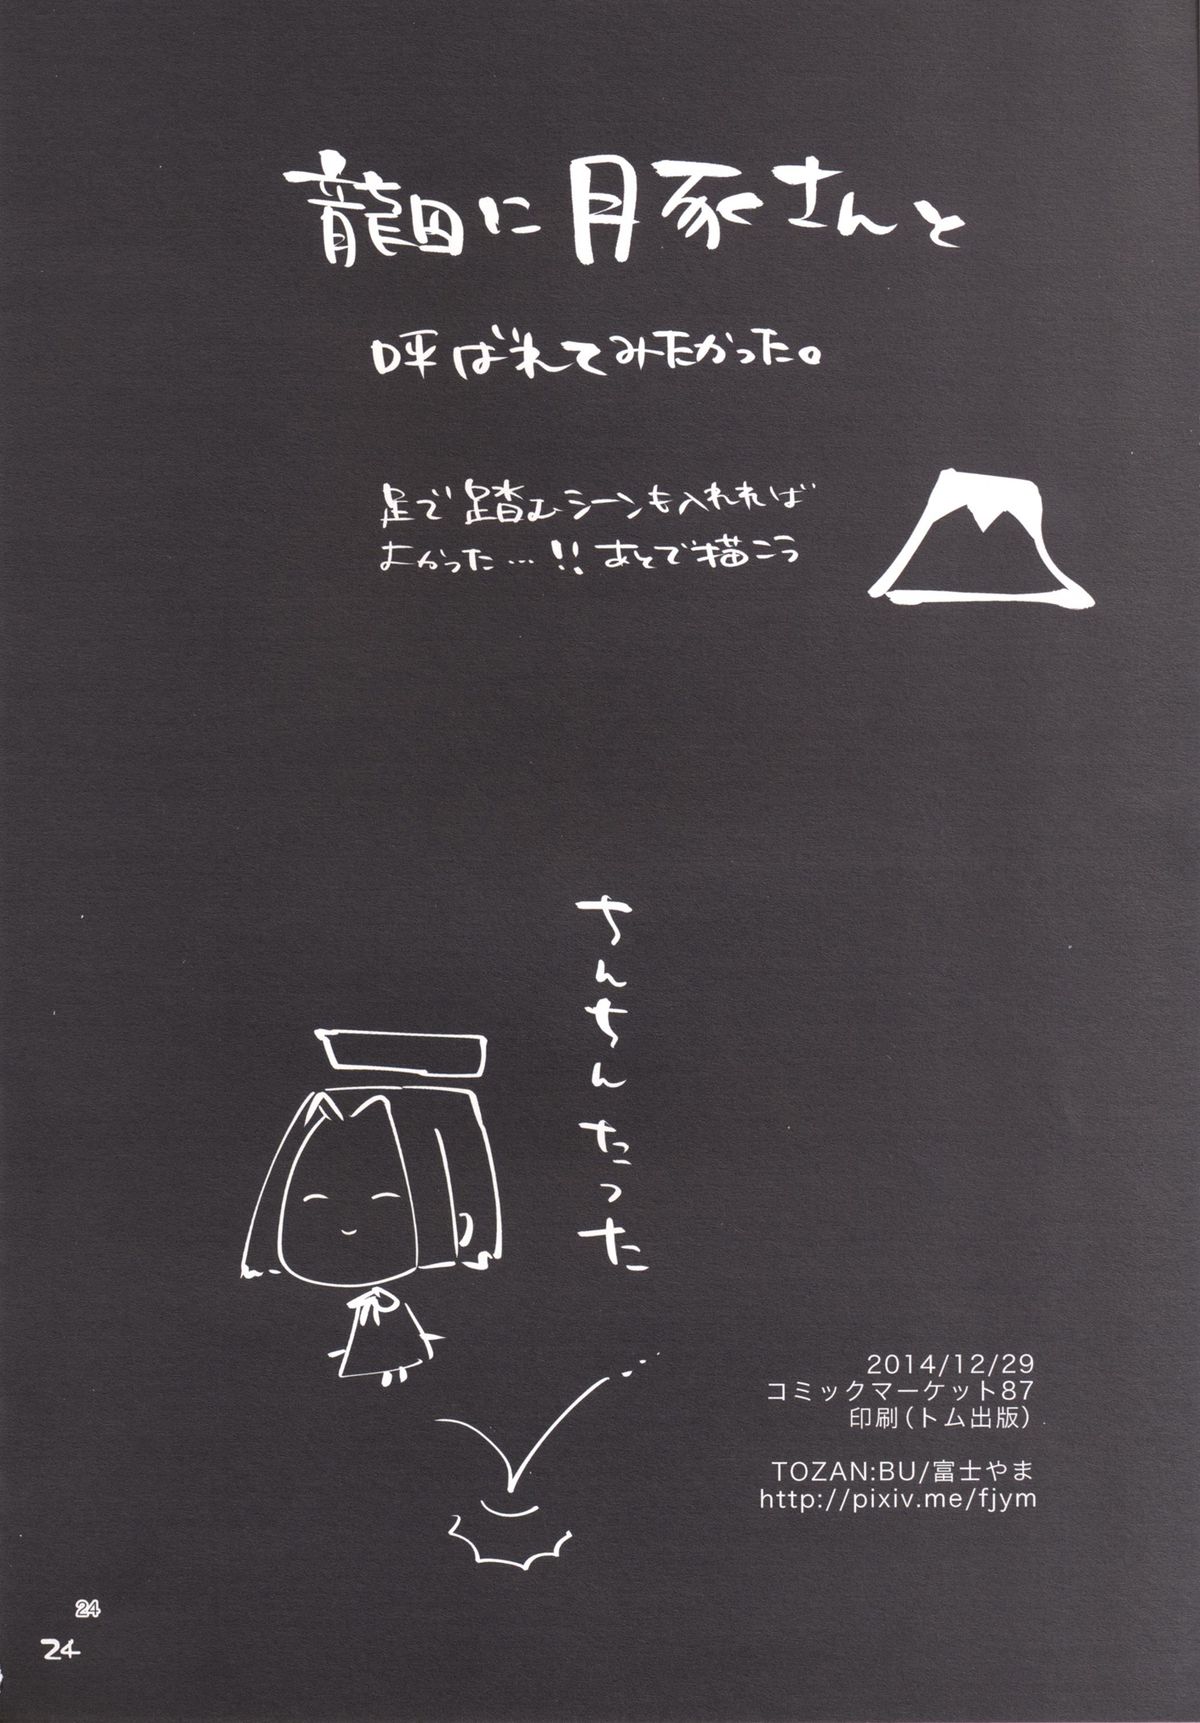 龍田に月豕さんと
呼ばれてみたかった。
足で踏むシーンも入れれば
よかった…!! あとで描こう
ちんちんたった
2014/12/29
コミックマーケット87
印刷（トム出版）
TOZAN:BU/富士やま
http://pixiv.me/fjym
24
24